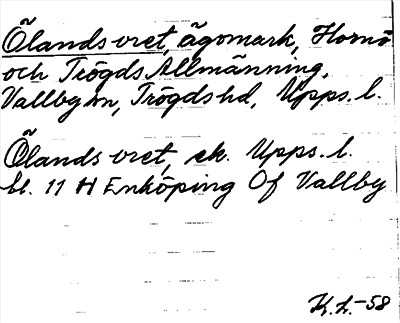 Ölands vret, ägomark, Hornö
och Trögds Allmänning,
Vallby sn, Trögds hd, Upps. l.
Ölands vret, ek. Upps. l.
bl. 11 H Enköping Of Vallby
K. L. -58